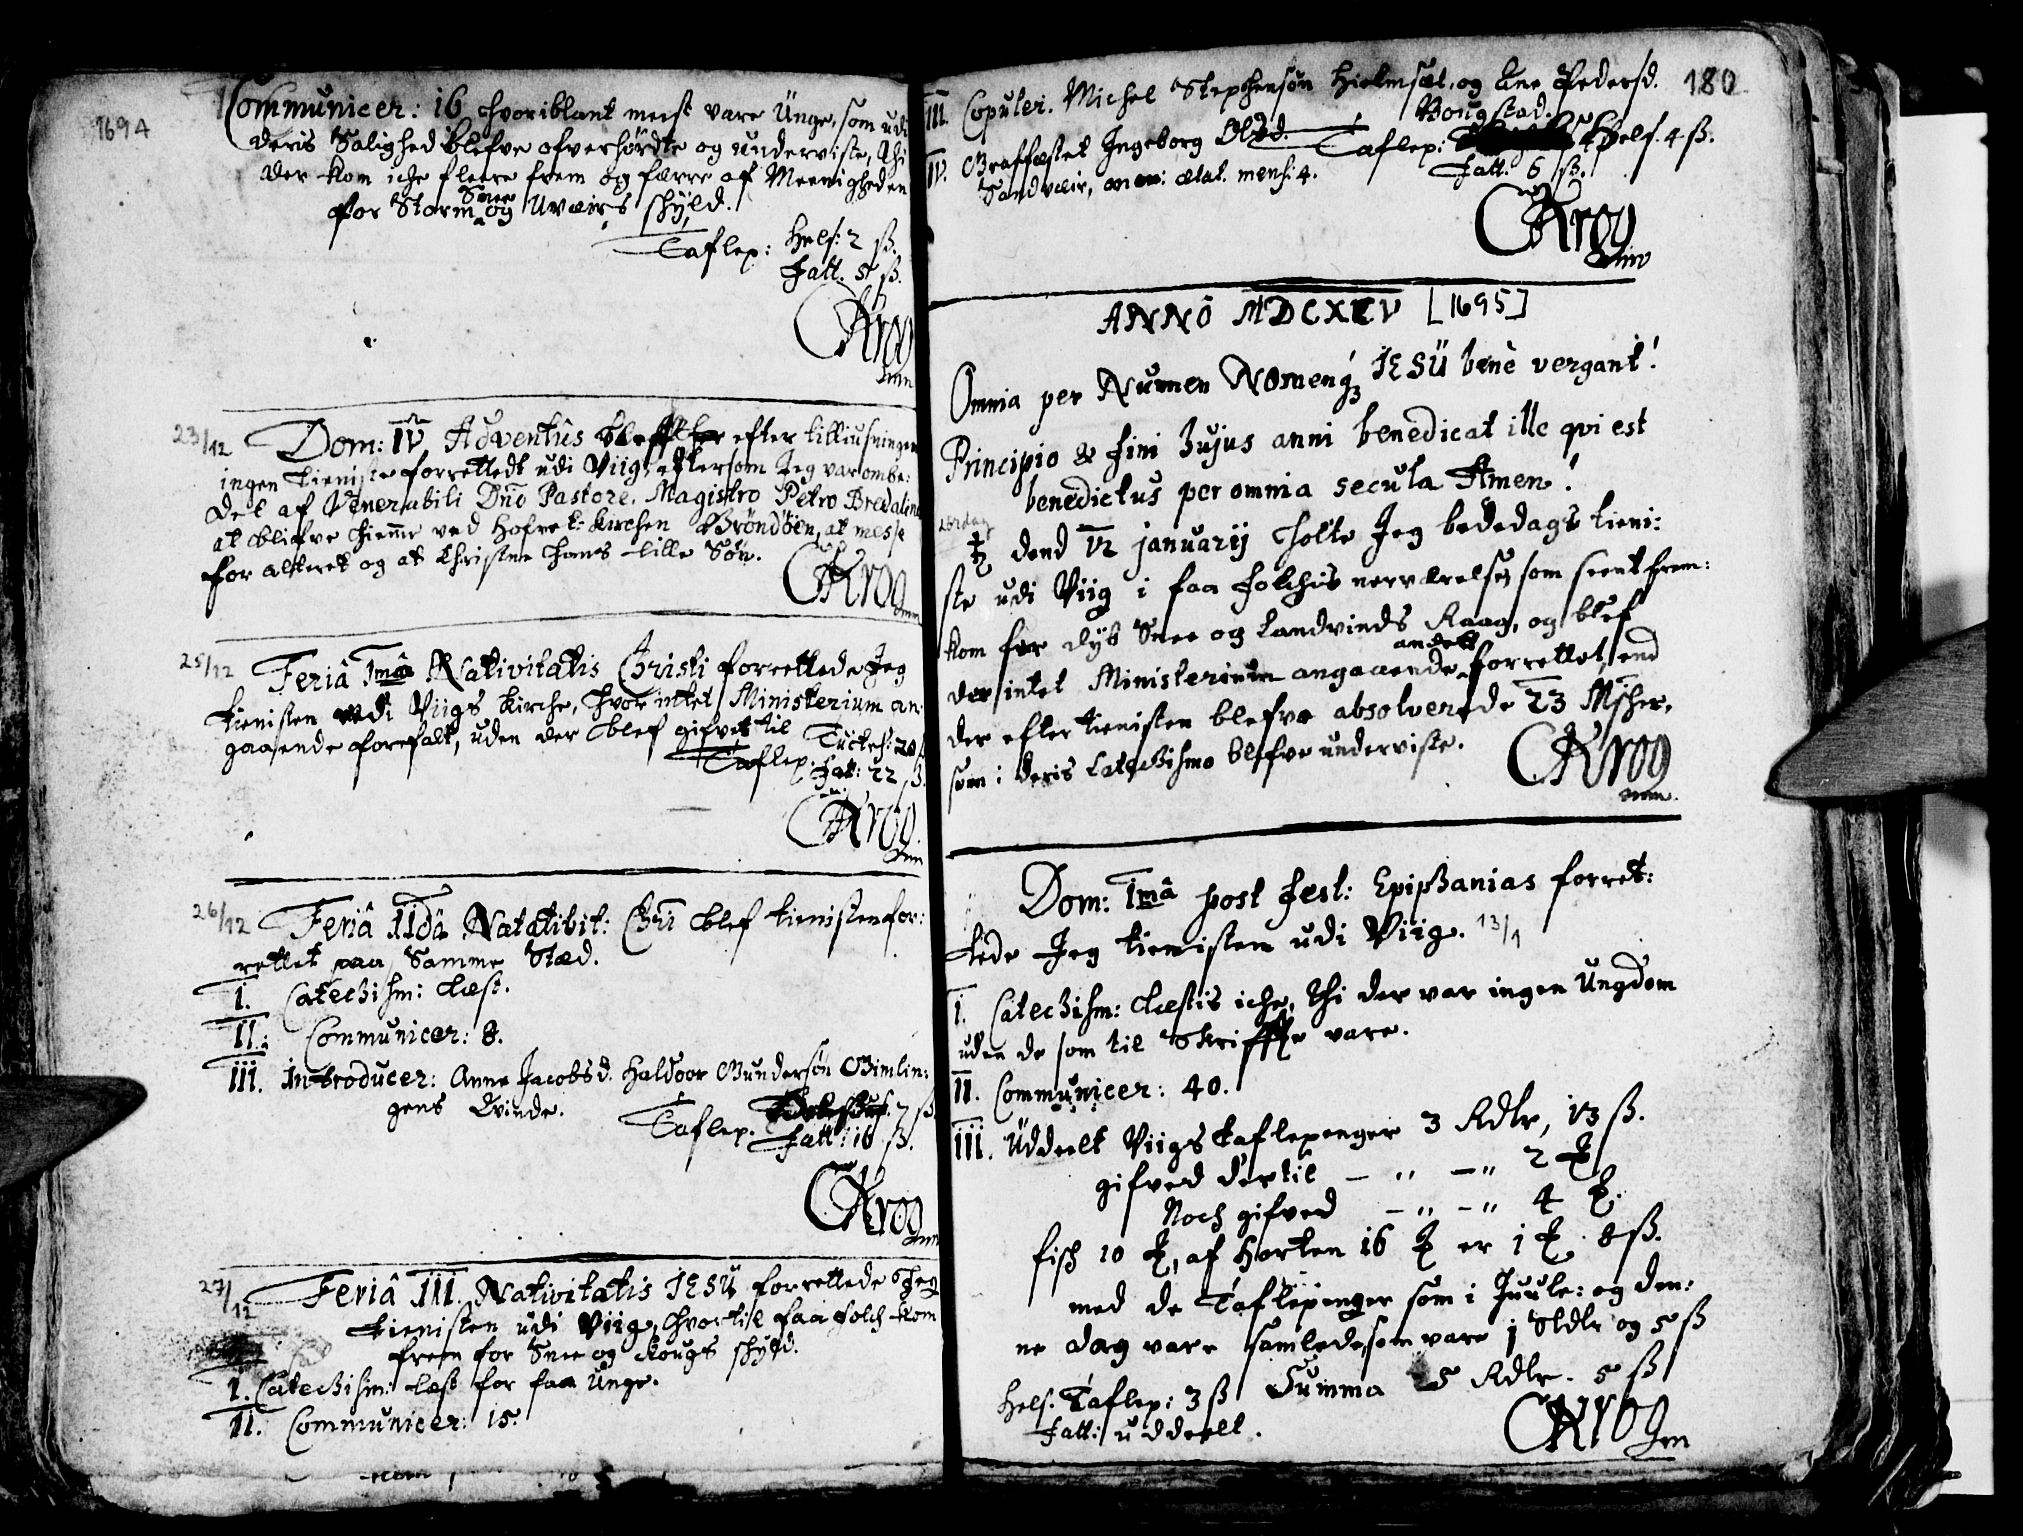 1694
Communicer: 16 hvoriblant meest vare Ünge, som udi
deris Salighed blefve ofverhördte og underviste, thi
der kom iche fleere frem og færre af Meenigheden
Snee
for Storm og Uvæirs skyld.
Taflep: Helf: 2 ß.
Fatt. 5 ß.
CKrog
mm
23/12 Dom: IV Adventûs blef efter tilliusningen
ingen tieniste forrettedt udi Viig, eftersom Jeg var ombe:
det af Venerabili Dno Pastore, Magistro Petro Bredalino
at blifve hieme ved Hofvet-Kirchen Brönöen, at messe
for alteret og at Christne hans lille Sön.
CKrog
mm
25/12 Feriâ Imâ Nativitatis Christi forrettede Jeg
tienisten udi Viigs Kirche, hvor intet Ministerium an:
gaaende forefalt, uden der blef gifvet til
Taflep: Tuctes: 20 ß
Fatt: 22 ß.
CKrog
mm
26/12 Feriâ IIdâ Natativit: Chri blef tienisten for:
rettet paa Samme Stæd.
I. Catechism: Læst.
II.: Communicer: 8.
III. Introducer: Anne Jacobsd. Haldoor Gundersön Gimlin:
gens Qvinde.
Taflep. 7 ß.
Fatt: 16 ß.
CKrog
mm
27/12 Feriâ III. Nativitatis IESÜ forrettede Jeg
tienisten udi Viig, hvortil faa folch kom
frem for Snee og Kougs skyld.
I. Catechism: Læst for faa Unge.
II. Communicer: 15.
180
III. Copuler. Michel Stephensön Hielmsæt, og Ane Pedersd.
Bougstad.
IV. Graffæstet Ingeborg Olsd. Taflep: Helf. 4 ß.
Sandvær, ætat. mens: 4. Fatt. 6 ß.
CKrog
mm
ANNO MDCXCV [1695]
Omnia per Numen Nomenq3 IESÜ benè vergant!
Principio & fini hujus anni benedicat ille qvi est
benedictus per omnia secula Amen!
Lördag
♄ dend 12 januarij holte Jeg bededags tieni:
ste udi Viig i faa folchis nerværelse, som seent frem:
kom for dyb Snee og Landvinds Raag, og blef
andett
der intet Ministerium angaaende forrettet, end
der efter tienisten blefve absolverede 23 Mscher,
som i deris Catechismo blefve underviste.
CKrog
mm.
Dom: Imâ post Fest: Epiphanias forret:
tede Jeg tienisten udi Viig. 13/1
I. Catechism: Læstis iche, thi der var ingen Ungdom
uden de som til Skriffte vare.
II. Communicer: 40.
III. Uddeelt Viigs taflepenger 3 Rdlr, 13 ß.
gifved dertil — " — " 2 ℔
Noch gifved — " — " 4 ℔.
fisch 10 ℔, af Horten 16 ℔ er 1 ℔. 8 ß.
med de Taflepenger som i Juule: og den:
ne dag vare samlede, som vare 1 Sldlr og 5 ß
Helf. Taflep: 3 ß Summa 5 Rdlr. 5 ß
Fatt: uddeelt.
CKrog
mm